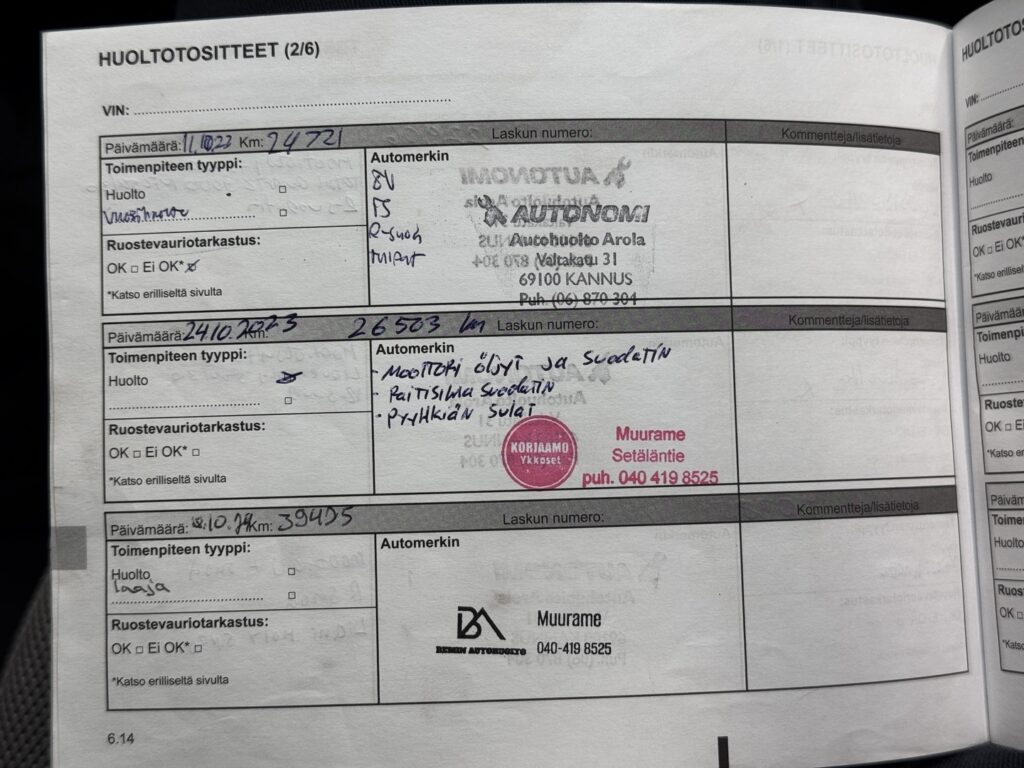 HUOLTOTOSITTEET (2/6)
VIN:
Päivämäärä: Km: 24721 Laskun numero: Kommentteja/lisätietoja
Toimenpiteen tyyppi:
Huolto
Vuosihuolto
Ruostevauriotarkastus:
OK □ Ei OK*
*Katso erilliseltä sivulta
Automerkin
AUTONOMI
Autohuolto Arola
Valtakatu 31
69100 KANNUS
Puh. (06) 870 304
Päivämäärä: 24.10.2023 Km: 26503 km Laskun numero: Kommentteja/lisätietoja
Toimenpiteen tyyppi:
Huolto
□
Ruostevauriotarkastus:
OK □ Ei OK* □
*Katso erilliseltä sivulta
Automerkin
- MOOTTORI ÖLJYT ja SUODATIN
- RAITISILMA SUODATIN
- PYYHKIÄN SULAT
KORJAAMO
Ykköset
Muurame
Setäläntie
puh. 040 419 8525
Päivämäärä: .10.24 Km: 39425 Laskun numero: Kommentteja/lisätietoja
Toimenpiteen tyyppi:
Huolto □
laaja □
Ruostevauriotarkastus:
OK □ Ei OK* □
*Katso erilliseltä sivulta
Automerkin
BA
REMIN AUTOHUOLTO
Muurame
040-419 8525
6.14
HUOLTOTOS
VIN:
Päivämäärä:
Toimenpiteen
Huolto
Ruostevaurio
OK □ Ei OK
*Katso erillise
Päivämäärä
Toimenpi
Huolto
Ruoste
OK □ E
*Katso er
Päivär
Toime
Huolto
Ruos
OK □
*Katso